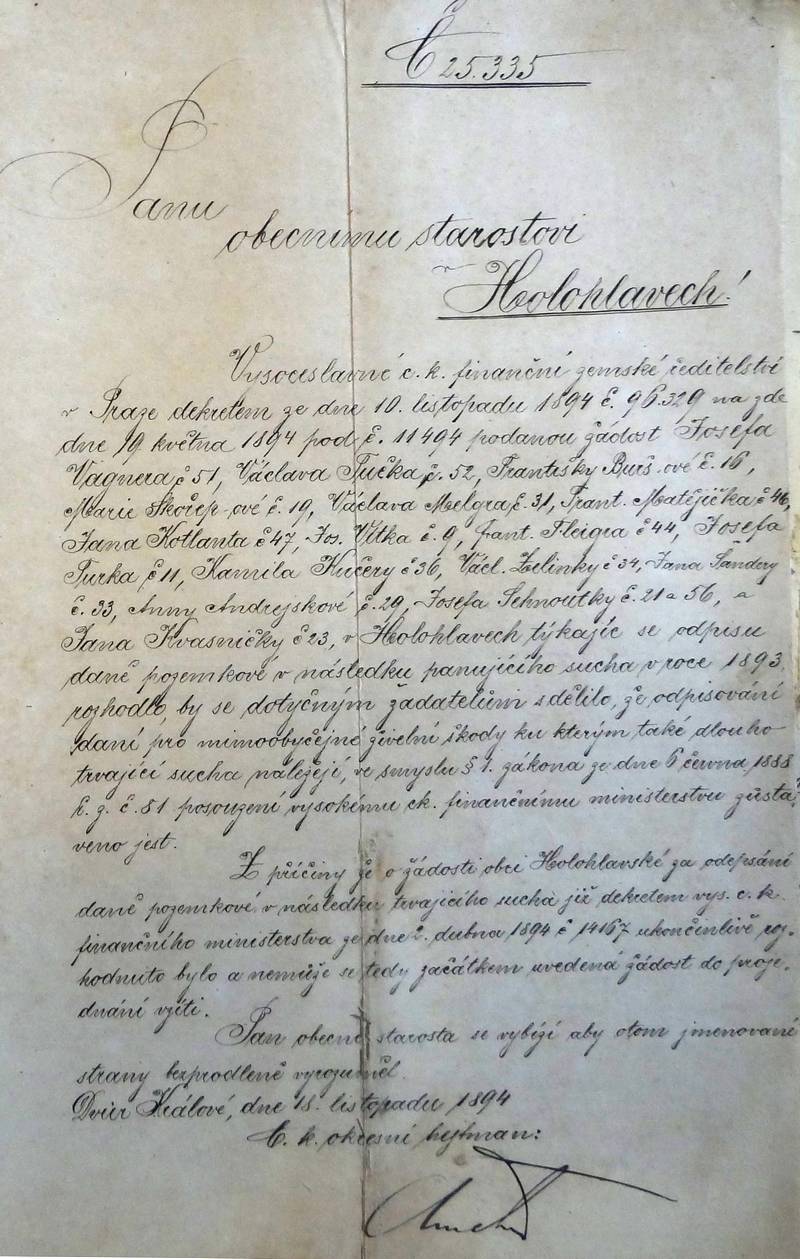 Č 25.335
Panu
obecnímu starostovi
v
Holohlavech!
Vysoceslavné c. k. finanční zemské ředitelství
v Praze dekretem ze dne 10. listopadu 1894 č. 96.329 na zde
dne 19 května 1894 pod č. 11494 podanou žádost Josefa
Vagnera č 51, Václava Tučka č. 52, Františky Burš-ové č. 16,
Marie Skořep-ové č. 19, Václava Melgra č. 31, Frant. Matějíčka č 46,
Jana Kotlanta č 47, Jos. Vltka č. 9, frant. Fleigra č 44, Josefa
Turka č 11, Kamila Kučery č 36, Václ. Zelinky č 34, Jana Šandery
č. 33, Anny Andrejskové č. 29, Josefa Sehnoutky č. 21 a 56, a
Jana Kvasničky č 23, v Holohlavech týkajíc se odpisu
daně pozemkové v následku panujícího sucha v roce 1893.
rozhodlo, by se dotyčným žadatelům sdělilo, že odpisování
daní pro mimoobyčejné živelní škody ku kterým také dlouho
trvající sucha náležejí, ve smyslu § 1. zákona ze dne 6 června 1888
ř. z. č. 81 posouzení vysokému ck. finančnímu ministerstvu zůsta-
veno jest.
Z příčiny že o žádosti obci Holohlavské za odepsání
daně pozemkové v následku trvajícího sucha již dekretem vys. c. k.
finančního ministerstva ze dne 2. dubna 1894 č 14167 ukončinlivě roz-
hodnuto bylo a nemůže se tedy začátkem uvedená žádost do proje-
dnání vzíti.
Pan obecní starosta se vybízí aby otom jmenované
strany bezprodleně vyrozuměl.
Dvůr Králové, dne 18. listopadu 1894
C. k. okresní hejtman: